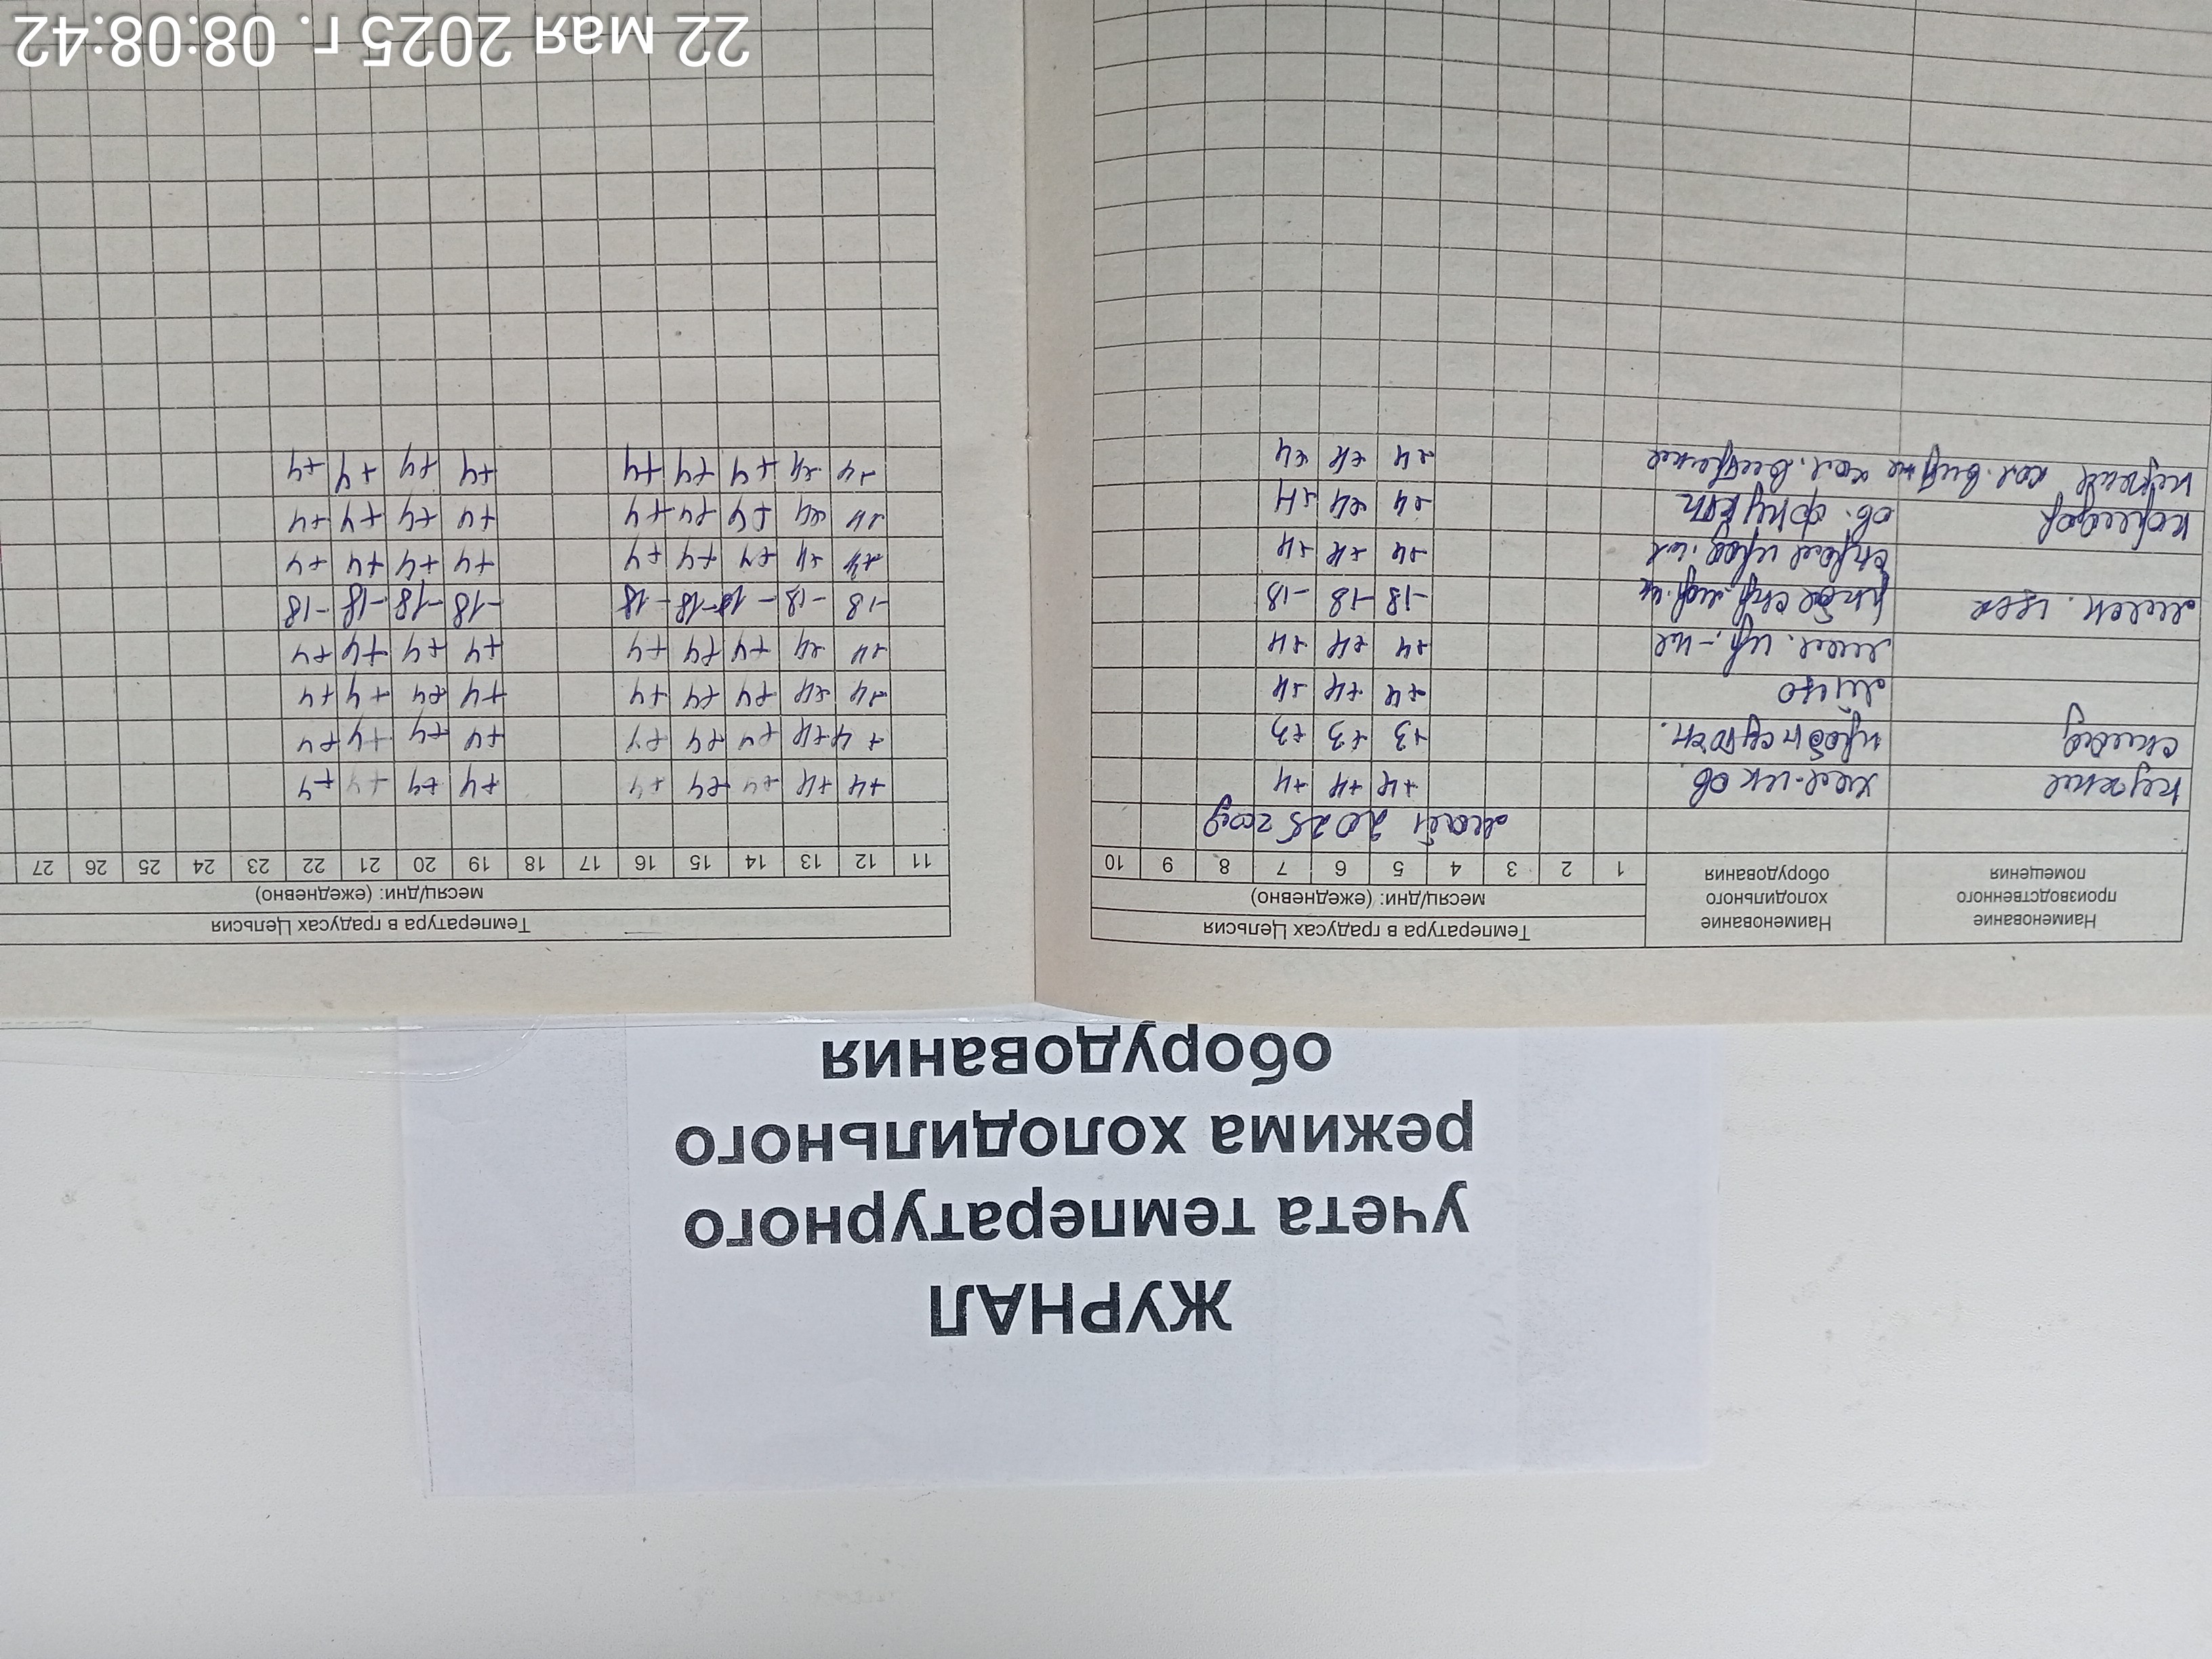 ЖУРНАЛ
учета температурного
режима холодильного
оборудования
Наименование производственного помещения
Наименование холодильного оборудования
Температура в градусах Цельсия
месяц/дни: (ежедневно)
1 2 3 4 5 6 7 8 9 10
Температура в градусах Цельсия
месяц/дни: (ежедневно)
11 12 13 14 15 16 17 18 19 20 21 22 23 24 25 26 27
май 2025 год
+4 +4 +4 +4 +4 +4 +4 +4 +4 +4 +4 +4
+3 +3 +3 +4 +4 +4 +4 +4 +4 +4 +4 +4
мясо +4 +4 +4 +4 +4 +4 +4 +4 +4 +4 +4 +4
+4 +4 +4 +4 +4 +4 +4 +4 +4 +4 +4 +4
-18 -18 -18 -18 -18 -18 -18 -18 -18 -18 -18 -18
+4 +4 +4 +4 +4 +4 +4 +4 +4 +4 +4 +4
коридор ов. фрукт +4 +4 +4 +4 +4 +4 +4 +4 +4 +4 +4 +4
+4 +4 +4 +4 +4 +4 +4 +4 +4 +4 +4 +4
22 мая 2025 г. 08:08:42